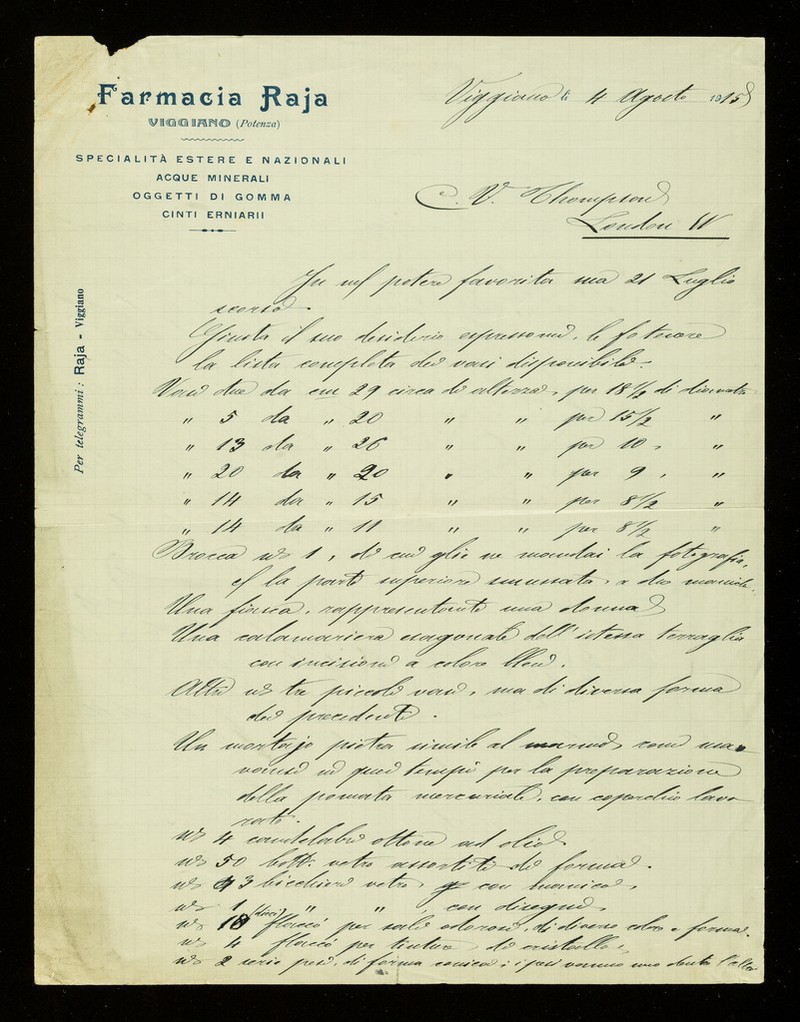 Farmacia Raja
VIGGIANO (Potenza)
SPECIALITÀ ESTERE E NAZIONALI
ACQUE MINERALI
OGGETTI DI GOMMA
CINTI ERNIARII
Per telegrammi: Raja - Viggiano
Viggiano li 4 Agosto 1915
C. V. Thompson
London W
In potere favorita sua 21 Luglio
scorso.
Giusta il suo desiderio espressomi, le fo tenere
la lista completa dei vasi disponibili.
Vasi due da cm 29 circa di altezza, per 18 1/2 di diametro
" 5 da " 20 " " per 15 1/2 "
" 13 da " 26 " " per 10, "
" 20 da " 20 " " per 9, "
" 14 da " 15 " " per 8 1/2 "
" 14 da " 11 " " per 8 1/2 "
Brocca n° 1, di cui glie ne mandai la fotografia,
la parte superiore smussata, a due manichi.
Una fiasca, rappresentante una donna
Una calamariera esagonale dell'istessa terraglia
con incisioni a colore bleu.
Altri n° tre piccoli vasi, ma di diversa forma
dei precedenti.
Un mortajo pietra simile al marmo, come usa
vansi in quei tempi per la preparazione
della pomata mercuriale, con coperchio lavo
rato.
n° 4 candelabri ottone ad olio.
n° 50 bott. vetro assortite di forma.
n° 3 bicchieri vetro con manico,
n° 1 " " con disegni,
n° 10 (dieci) flacó per sali odorosi, di diverso colore e forma.
n° 4 flacó per tinture di cristallo,
n° 2 serie pesi, di forma conica; i pesi vanno uno dentro l'altro